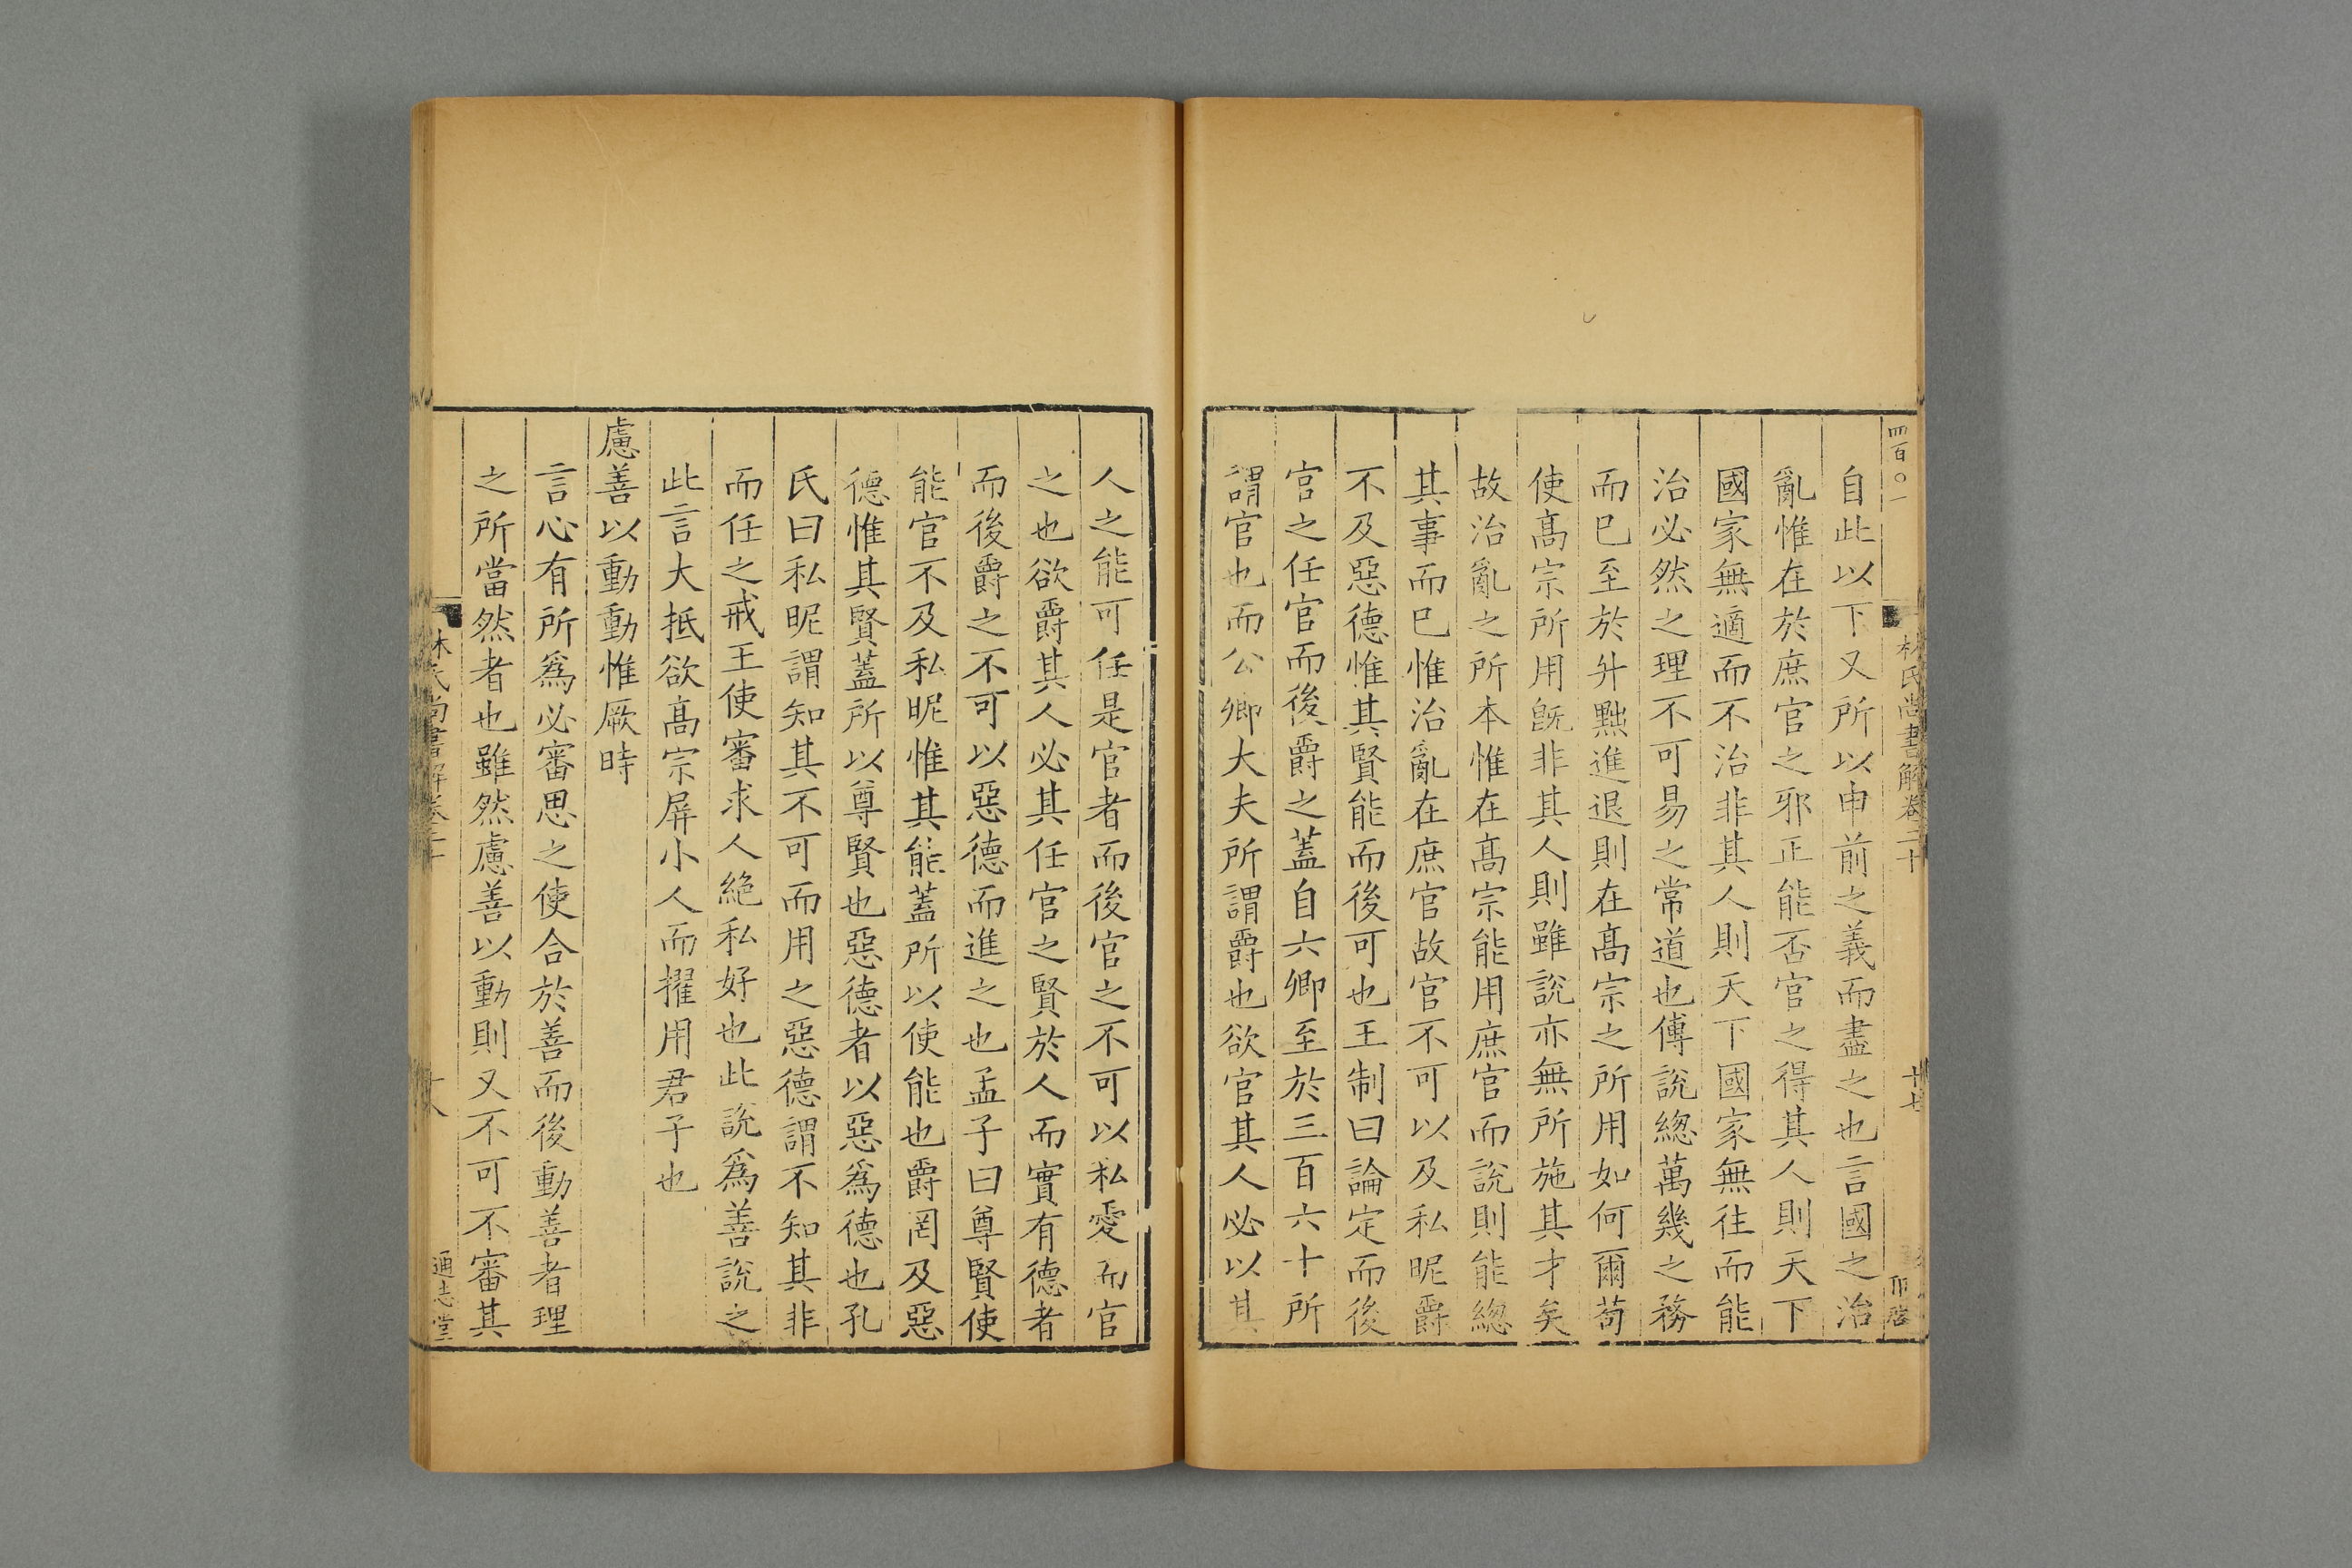 四百〇一
林氏尚書解卷二十
十七
自此以下又所以申前之義而盡之也言國之治
亂惟在於庶官之邪正能否官之得其人則天下
國家無適而不治非其人則天下國家無往而能
治必然之理不可易之常道也傅說緫萬幾之務
而巳至於升黜進退則在髙宗之所用如何爾苟
使髙宗所用旣非其人則雖說亦無所施其才矣
故治亂之所本惟在髙宗能用庶官而說則能緫
其事而巳惟治亂在庶官故官不可以及私昵爵
不及惡德惟其賢能而後可也王制曰論定而後
官之任官而後爵之蓋自六卿至於三百六十所
謂官也而公卿大夫所謂爵也欲官其人必以其
人之能可任是官者而後官之不可以私愛而官
之也欲爵其人必其任官之賢於人而實有德者
而後爵之不可以惡德而進之也孟子曰尊賢使
能官不及私昵惟其能蓋所以使能也爵罔及惡
德惟其賢蓋所以尊賢也惡德者以惡爲德也孔
氏曰私昵謂知其不可而用之惡德謂不知其非
而任之戒王使審求人絶私好也此說爲善說之
此言大抵欲髙宗屏小人而擢用君子也
慮善以動動惟厥時
言心有所爲必審思之使合於善而後動善者理
之所當然者也雖然慮善以動則又不可不審其
林氏尚書解卷二十
十八
通志堂